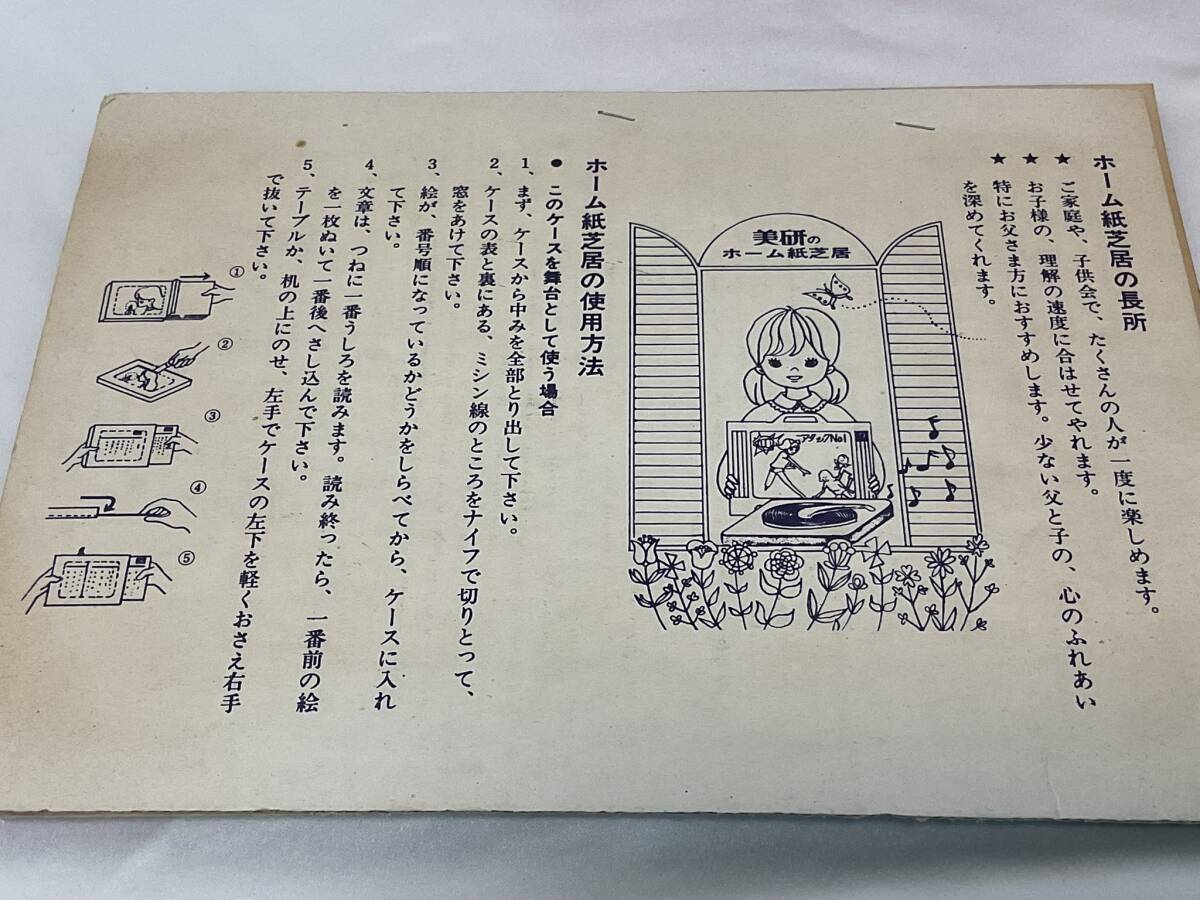 ホーム紙芝居の長所
★ ご家庭や、子供会で、たくさんの人が一度に楽しめます。
★ お子様の、理解の速度に合はせてやれます。
★ 特にお父さま方におすすめします。少ない父と子の、心のふれあい
を深めてくれます。
美研の
ホーム紙芝居
アタックNo1
ホーム紙芝居の使用方法
● このケースを舞台として使う場合
1、まず、ケースから中みを全部とり出して下さい。
2、ケースの表と裏にある、ミシン線のところをナイフで切りとって、
窓をあけて下さい。
3、絵が、番号順になっているかどうかをしらべてから、ケースに入れ
て下さい。
4、文章は、つねに一番うしろを読みます。読み終ったら、一番前の絵
を一枚ぬいて一番後へさし込んで下さい。
5、テーブルか、机の上にのせ、左手でケースの左下を軽くおさえ右手
で抜いて下さい。
①
②
③
④
⑤